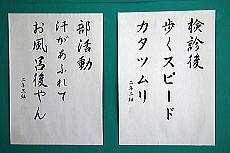 検診後
歩くスピード
カタツムリ
二年三組
部活動
汗があふれて
お風呂後やん
二年三組